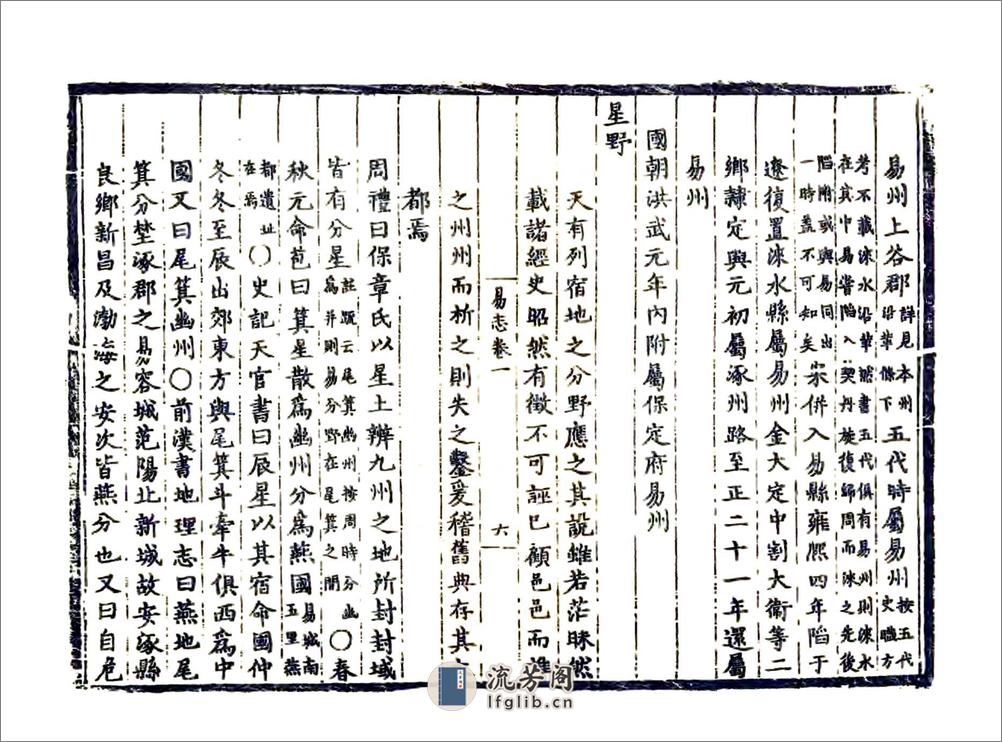 易州上谷郡詳見本州沿革條下五代時屬易州按五代史職方
考不載淶水沿革遼書五代俱有易州則淶水
在其中易嘗陷入契丹旋復歸周而淶之先後
陷附或與易同出一時蓋不可知矣宋併入易縣雍熙四年陷于
遼復置淶水縣屬易州金大定中割大衞等二
鄉隸定興元初屬涿州路至正二十一年還屬
易州
國朝洪武元年內附屬保定府易州
星野
天有列宿地之分野應之其說雖若茫昧然
載諸經史昭然有徵不可誣已顧邑邑而誰
易志卷一 六
之州州而析之則失之鑿爰稽舊典存其
都焉
周禮曰保章氏以星土辨九州之地所封封域
皆有分星註䟽云尾箕幽州按周時分幽為并則易分野在尾箕之間〇春
秋元命苞曰箕星散爲幽州分爲燕國易城南五里燕
都遺址在焉〇史記天官書曰辰星以其宿命國仲
冬冬至辰出郊東方與尾箕斗牽牛俱西爲中
國又曰尾箕幽州〇前漢書地理志曰燕地尾
箕分埜涿郡之易容城范陽北新城故安涿縣
良鄉新昌及渤海之安次皆燕分也又曰自危
流芳阁
lfglib.cn